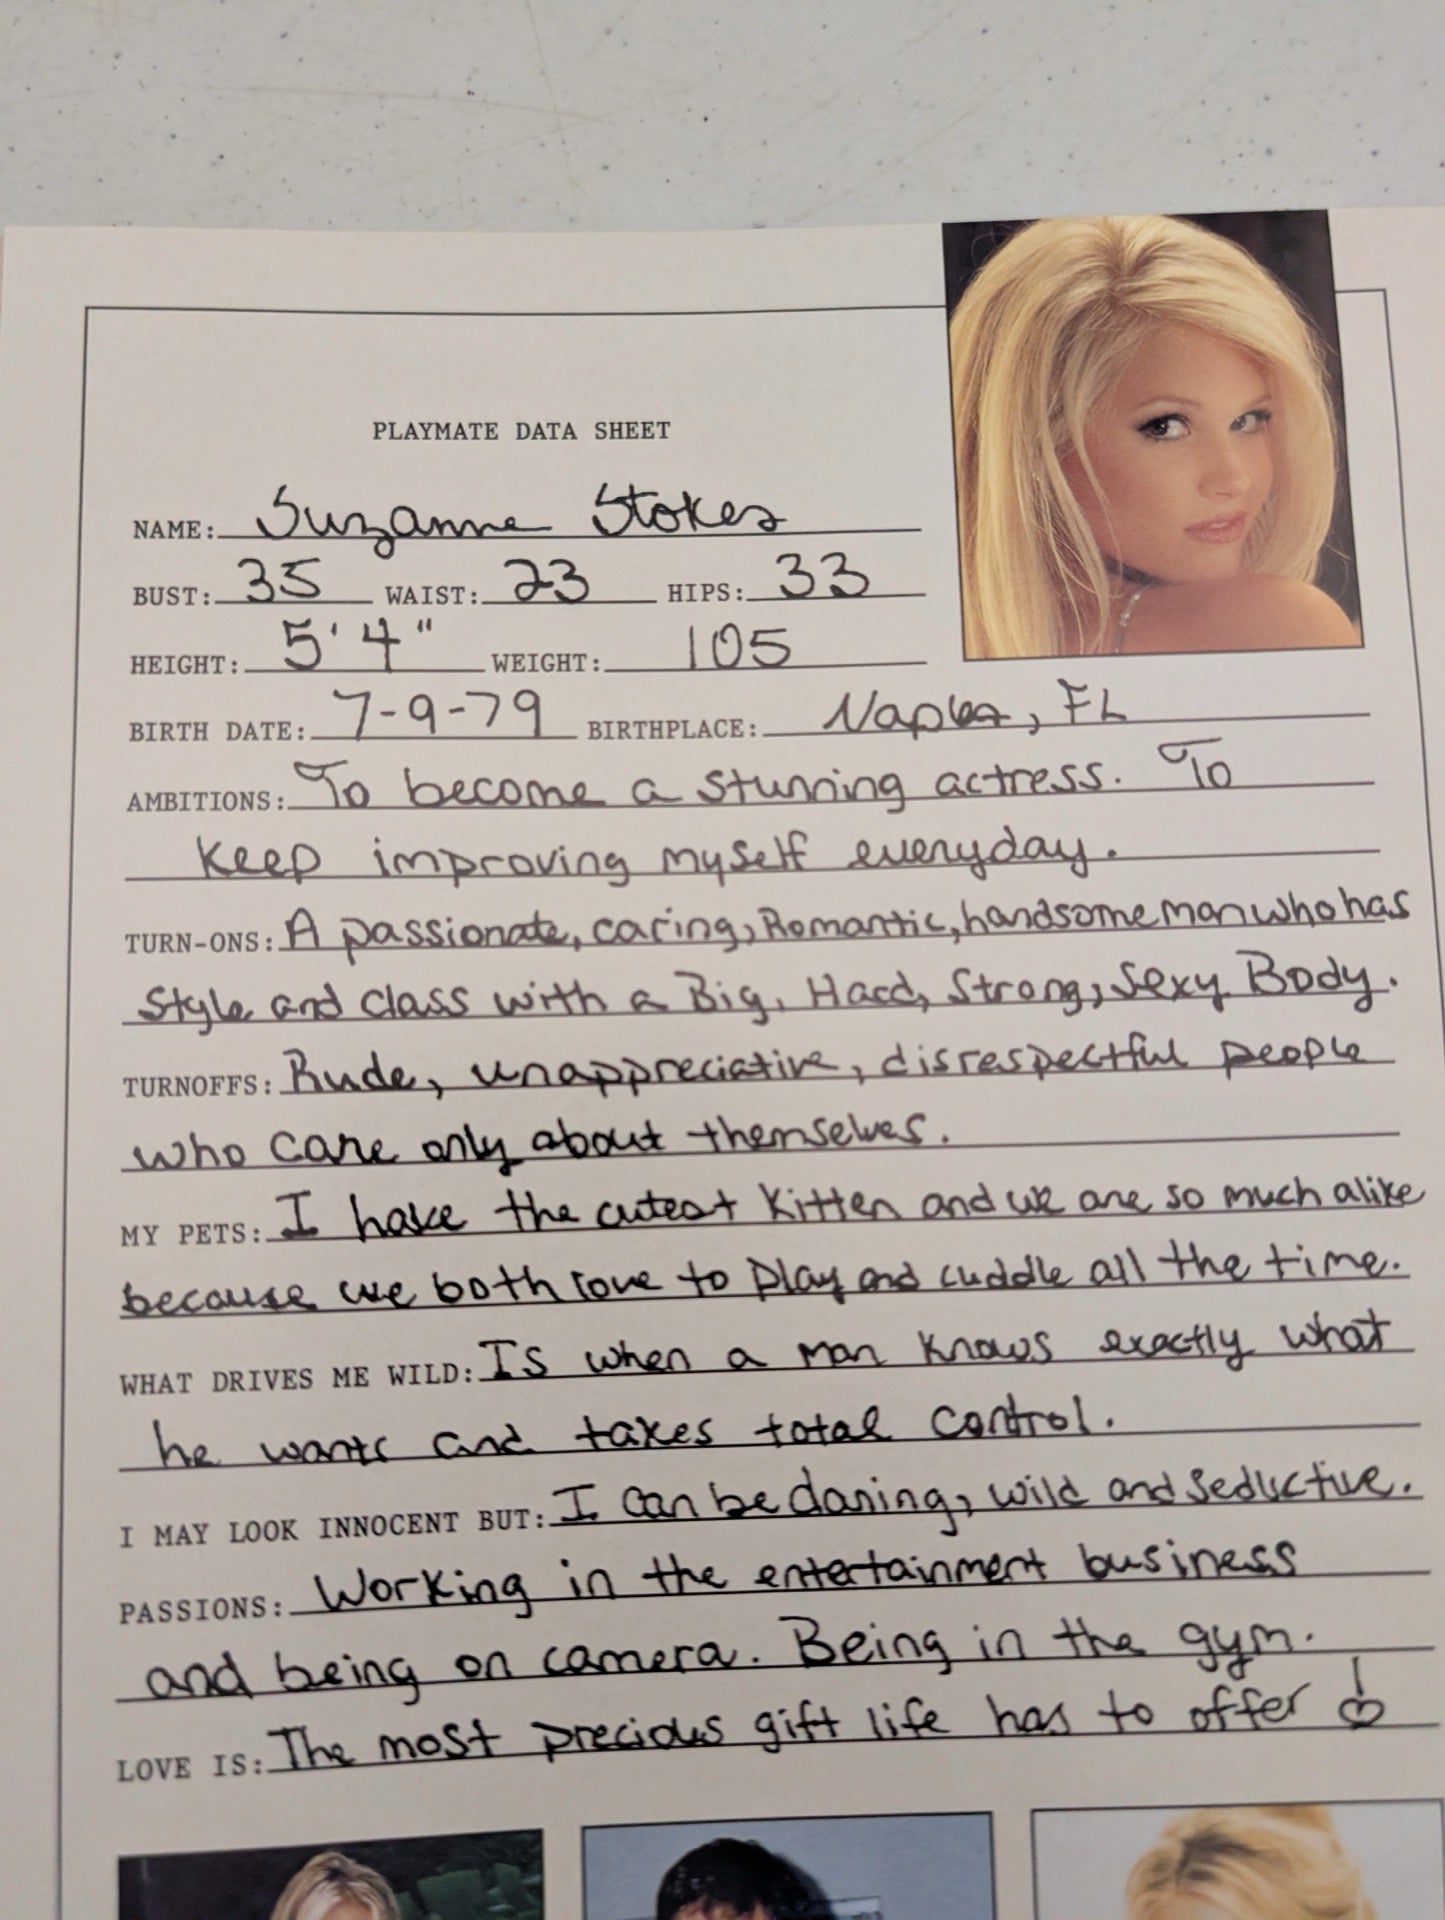 PLAYMATE DATA SHEET
NAME: Suzanne Stokes
BUST: 35 WAIST: 23 HIPS: 33
HEIGHT: 5'4" WEIGHT: 105
BIRTH DATE: 7-9-79 BIRTHPLACE: Naples, FL
AMBITIONS: To become a stunning actress. To
keep improving myself everyday.
TURN-ONS: A passionate, caring, Romantic, handsome man who has
style and class with a Big, Hard, Strong, Sexy Body.
TURNOFFS: Rude, unappreciative, disrespectful people
who care only about themselves.
MY PETS: I have the cutest Kitten and we are so much alike
because we both love to play and cuddle all the time.
WHAT DRIVES ME WILD: Is when a man knows exactly what
he wants and takes total control.
I MAY LOOK INNOCENT BUT: I can be daring, wild and seductive.
PASSIONS: Working in the entertainment business
and being on camera. Being in the gym.
LOVE IS: The most precious gift life has to offer !